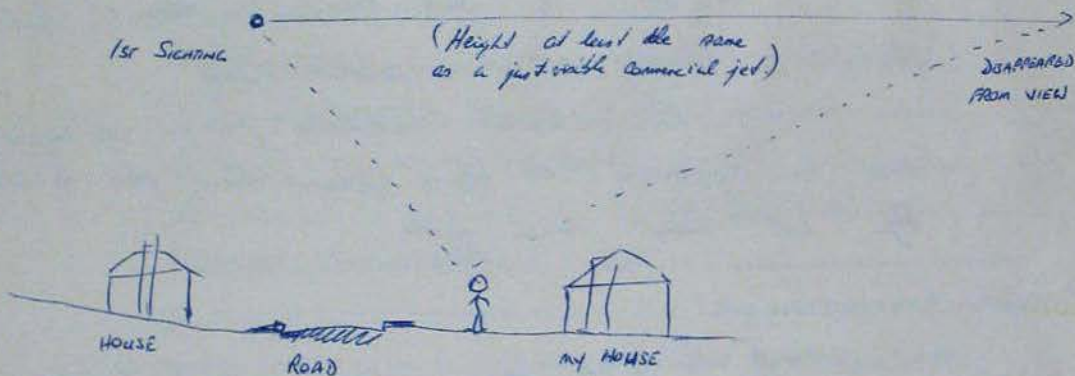 1st SIGHTING
(Height at least the same
as a just-visible commercial jet.)
DISAPPEARED
FROM VIEW
HOUSE
ROAD
MY HOUSE